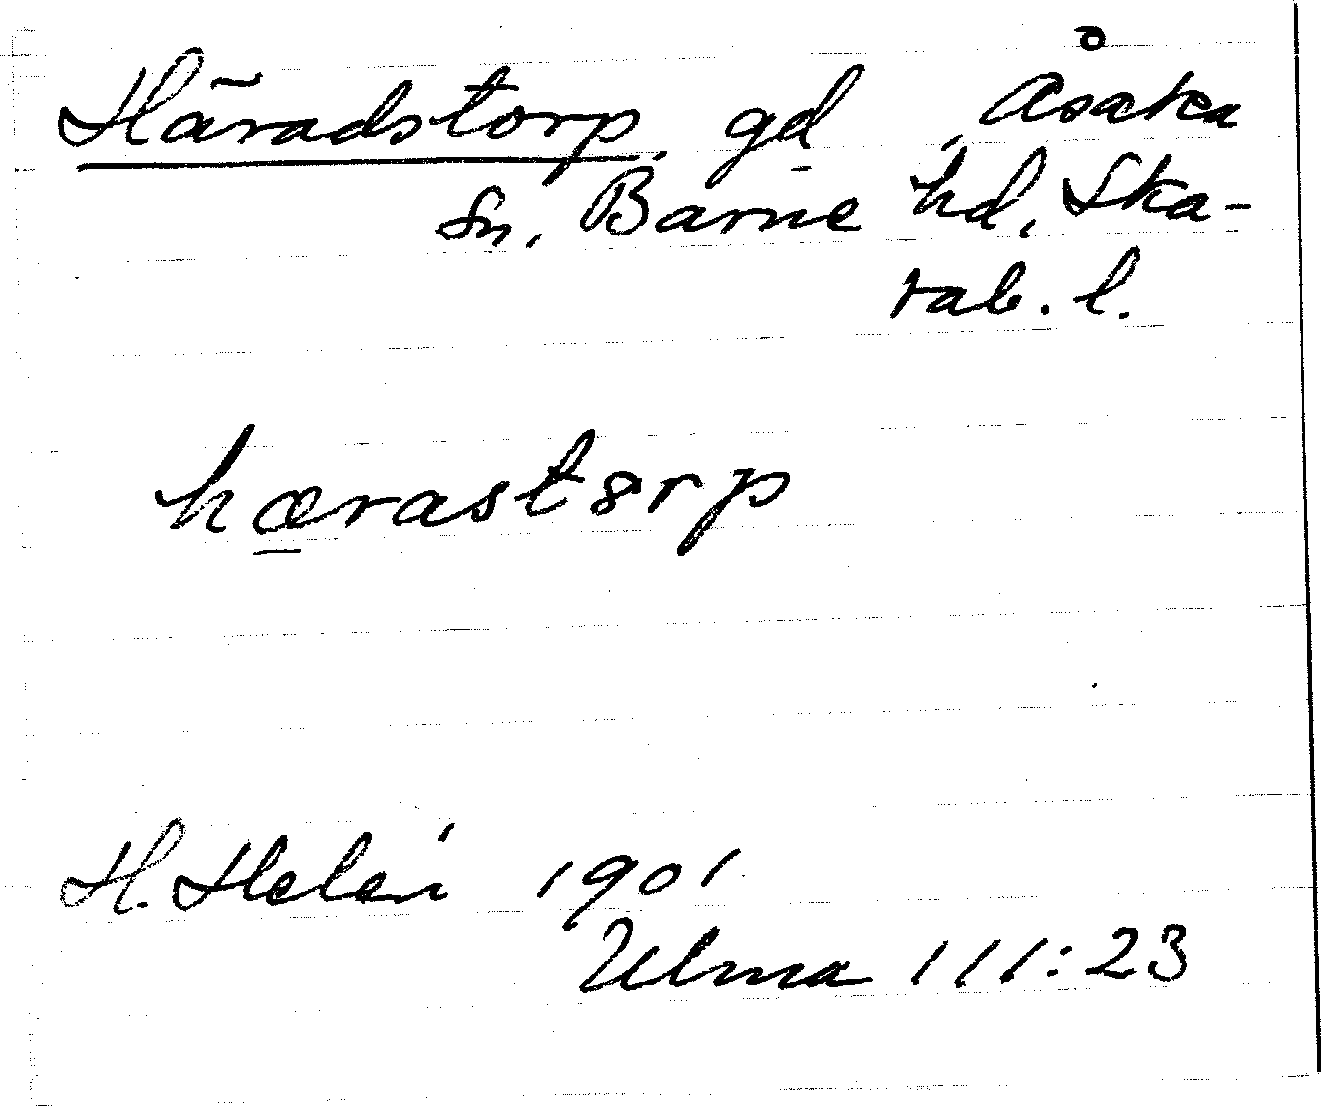 Häradstorp, gd, Åsaka
sn, Barne hd, Ska-
rab. l.
hærastorp
H. Helén 1901
Ulma 111:23